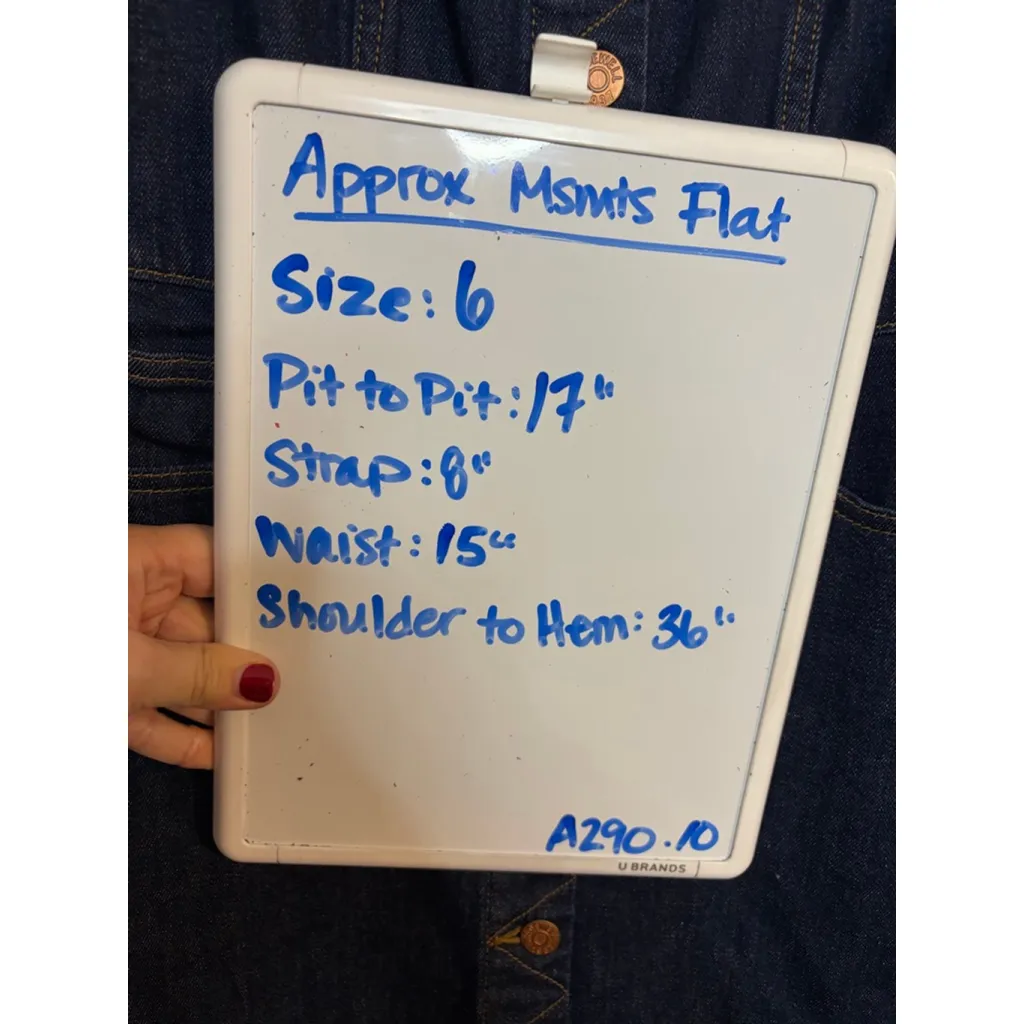 EWELL
Approx Msmts Flat
Size: 6
Pit to Pit: 17"
Strap: 8"
Waist: 15"
Shoulder to Hem: 36"
A290.10
U BRANDS